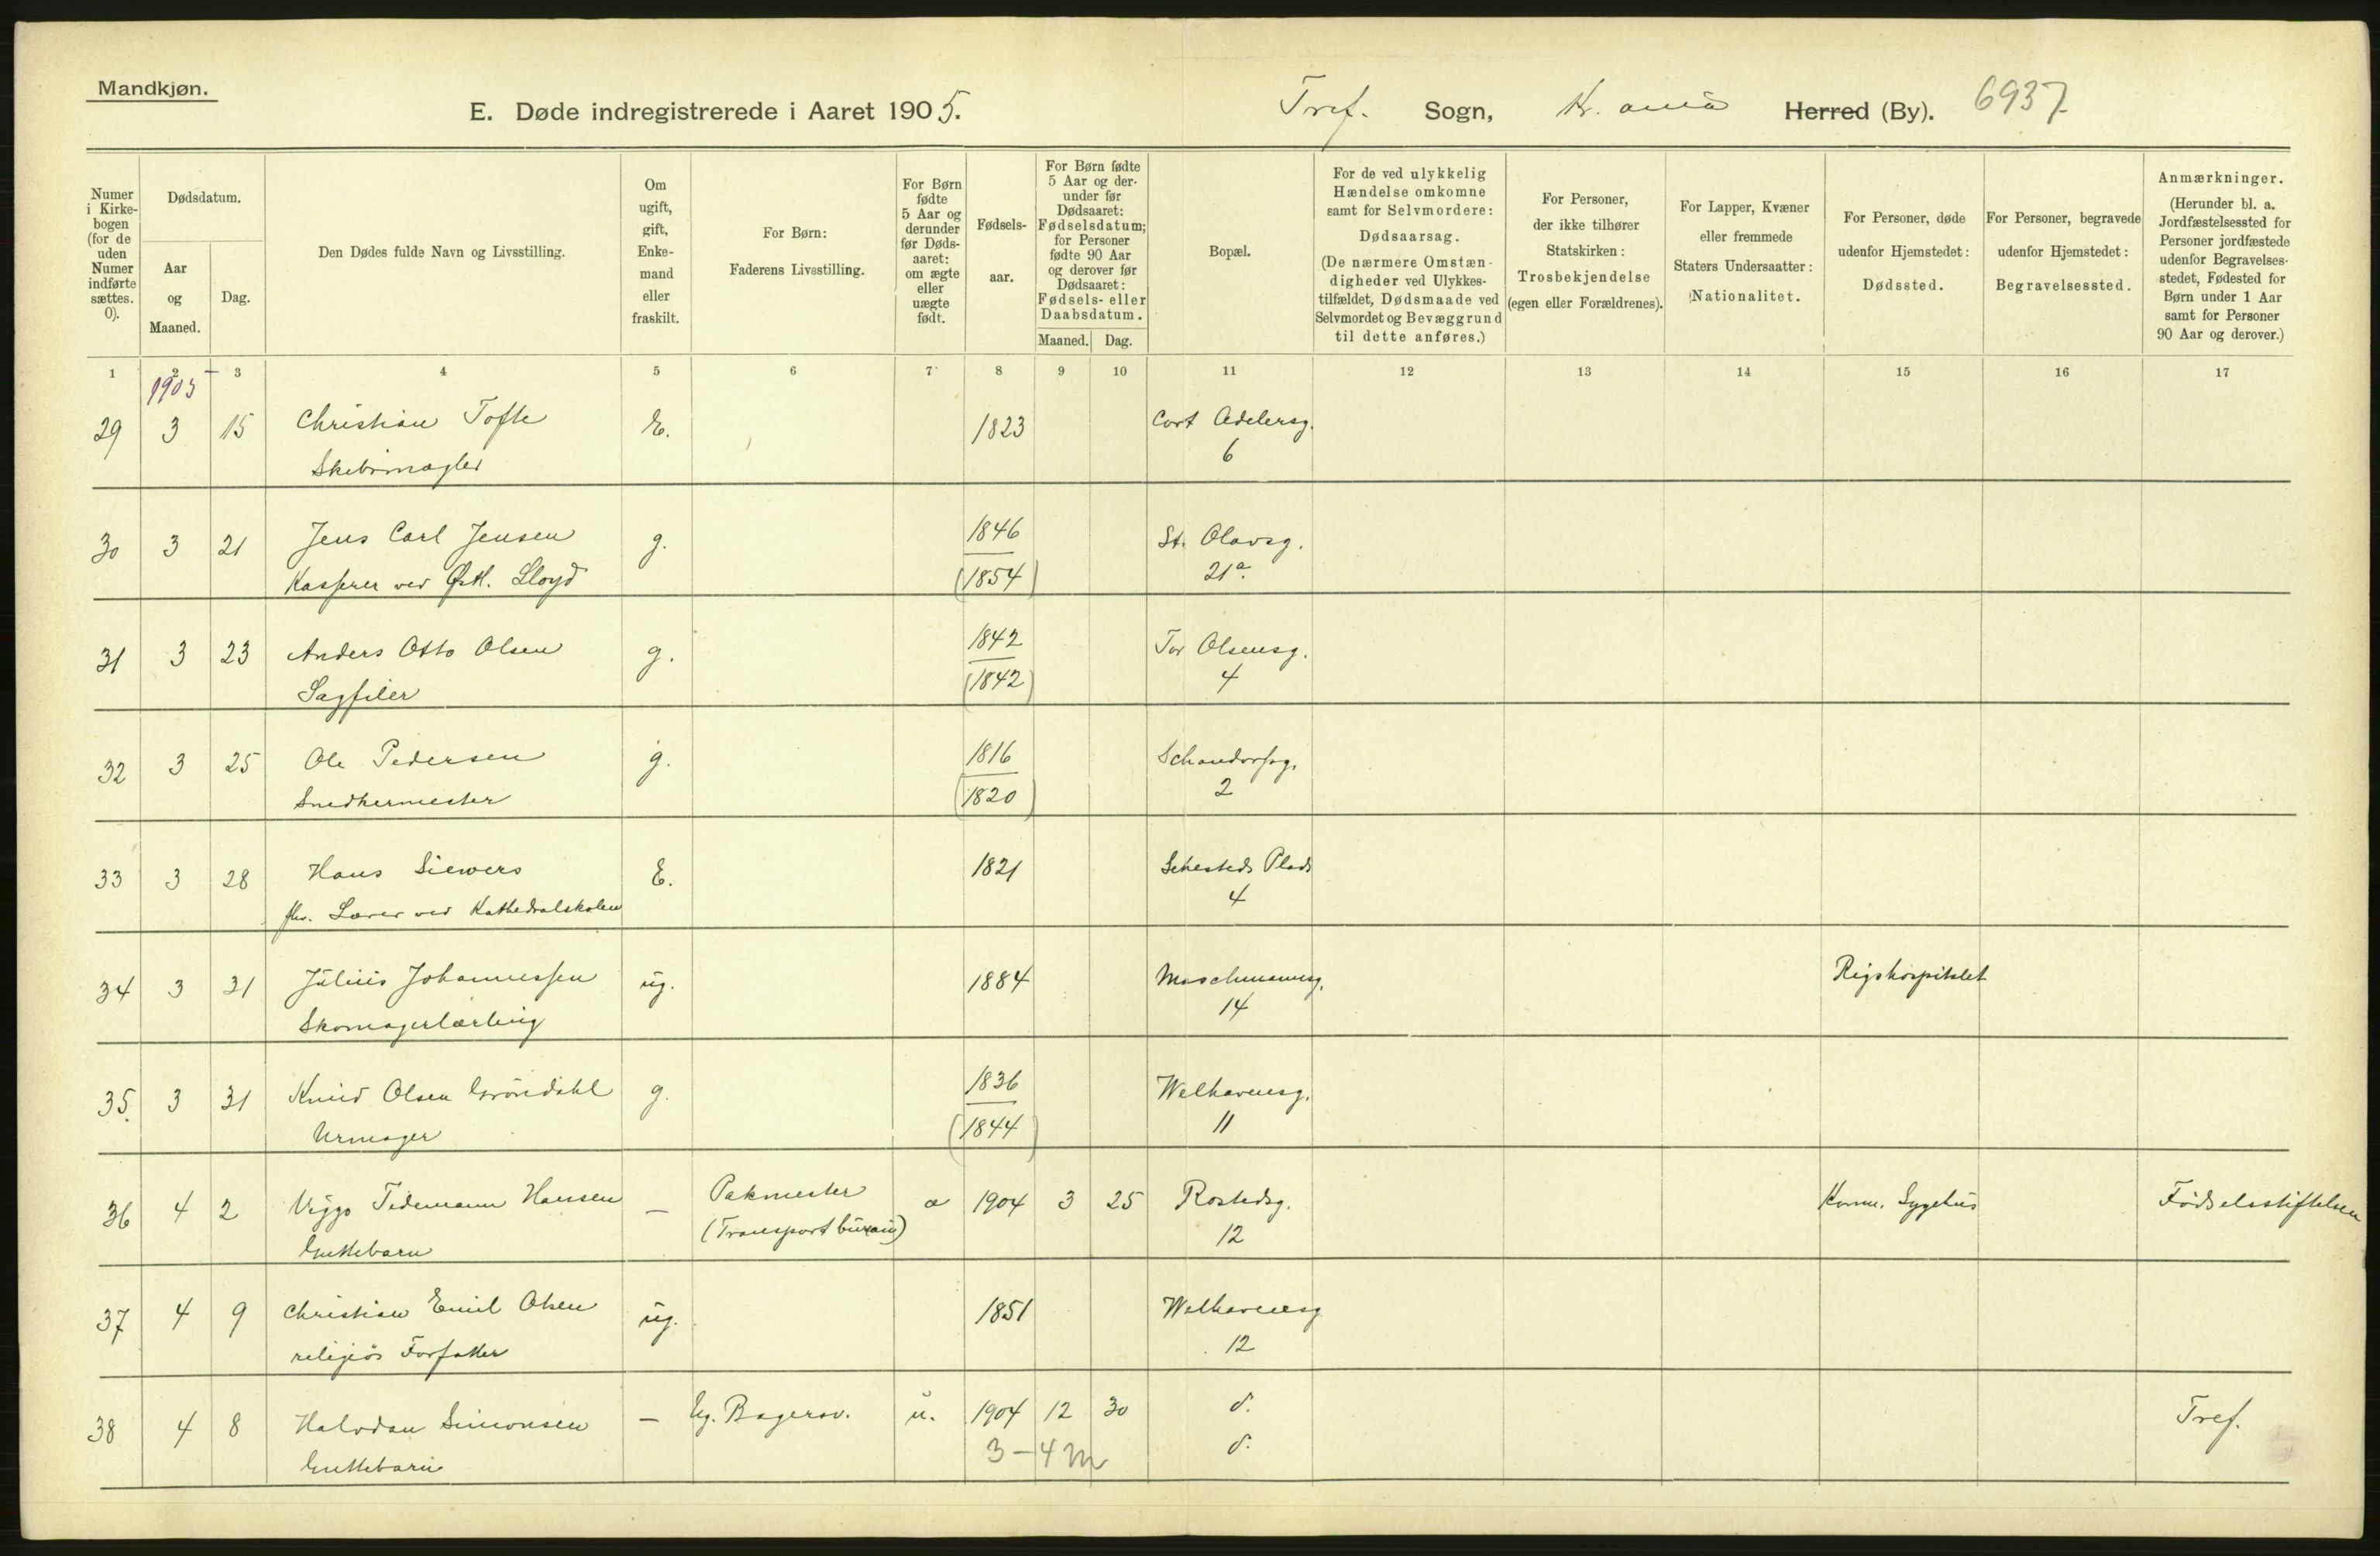 Mandkjøn.
E. Døde indregistrerede i Aaret 1905.
Tref. Sogn, Kr. ania Herred (By). 6937.
Numer i Kirke-bogen (for de uden Numer indførte sættes. 0).
Dødsdatum.
Aar og Maaned.
Dag.
Den Dødes fulde Navn og Livsstilling.
Om ugift, gift, Enke-mand eller fraskilt.
For Børn:
Faderens Livsstilling.
For Børn fødte 5 Aar og derunder før Døds-aaret: om ægte eller uægte født.
Fødsels-aar.
For Børn fødte 5 Aar og der-under før Dødsaaret: Fødselsdatum; for Personer fødte 90 Aar og derover før Dødsaaret: Fødsels- eller Daabsdatum.
Maaned. Dag.
Bopæl.
For de ved ulykkelig Hændelse omkomne samt for Selvmordere: Dødsaarsag. (De nærmere Omstæn-digheder ved Ulykkes-tilfældet, Dødsmaade ved Selvmordet og Bevæggrund til dette anføres.)
For Personer, der ikke tilhører Statskirken: Trosbekjendelse (egen eller Forældrenes).
For Lapper, Kvæner eller fremmede Staters Undersaatter: Nationalitet.
For Personer, døde udenfor Hjemstedet: Dødssted.
For Personer, begravede udenfor Hjemstedet: Begravelsessted.
Anmærkninger. (Herunder bl. a. Jordfæstelsessted for Personer jordfæstede udenfor Begravelses-stedet, Fødested for Børn under 1 Aar samt for Personer 90 Aar og derover.)
1 2 3 4 5 6 7 8 9 10 11 12 13 14 15 16 17
1905
29 3 15 Christian Tofte E. 1823 Cort Adelersg.
Skibsmægler 6
30 3 21 Jens Carl Jensen g. 1846 St. Olavsg.
Kasserer ved Østl. Lloyd (1854) 21a.
31 3 23 Anders Otto Olsen g. 1842 Tor Olsensg.
Sagfiler (1842) 4
32 3 25 Ole Pedersen g. 1816 Schandorfsg.
Snedkermester (1820) 2
33 3 28 Hans Siewers E. 1821 Sehesteds Plads
fhv. Lærer ved Kathedralskolen 4
34 3 31 Julius Johannessen ug. 1884 Maschmannsg. Rigshospitalet
Skomagerlærling 14
35. 3 31 Knud Olsen Grøndahl g. 1836 Welhavensg.
Urmager (1844) 11
36 4 2 Viggo Tidemann Hansen — Pakmester æ 1904 3 25 Rostedsg. Komm. Sygehus Fødselsstiftelsen
Guttebarn (Transportbureau) 12
37 4 9 Christian Emil Olsen ug. 1851 Welhavensg
religiøs Forfatter 12
38 4 8 Halvdan Simonsen — Ug. Bagersv. u. 1904 12 30 d. Tref.
Guttebarn 3-4 M d.